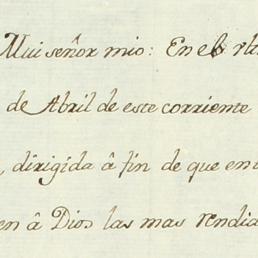 Mui señor mio: En el
de Abril de este corriente
, dirigida â fin de que
en â Dios las mas